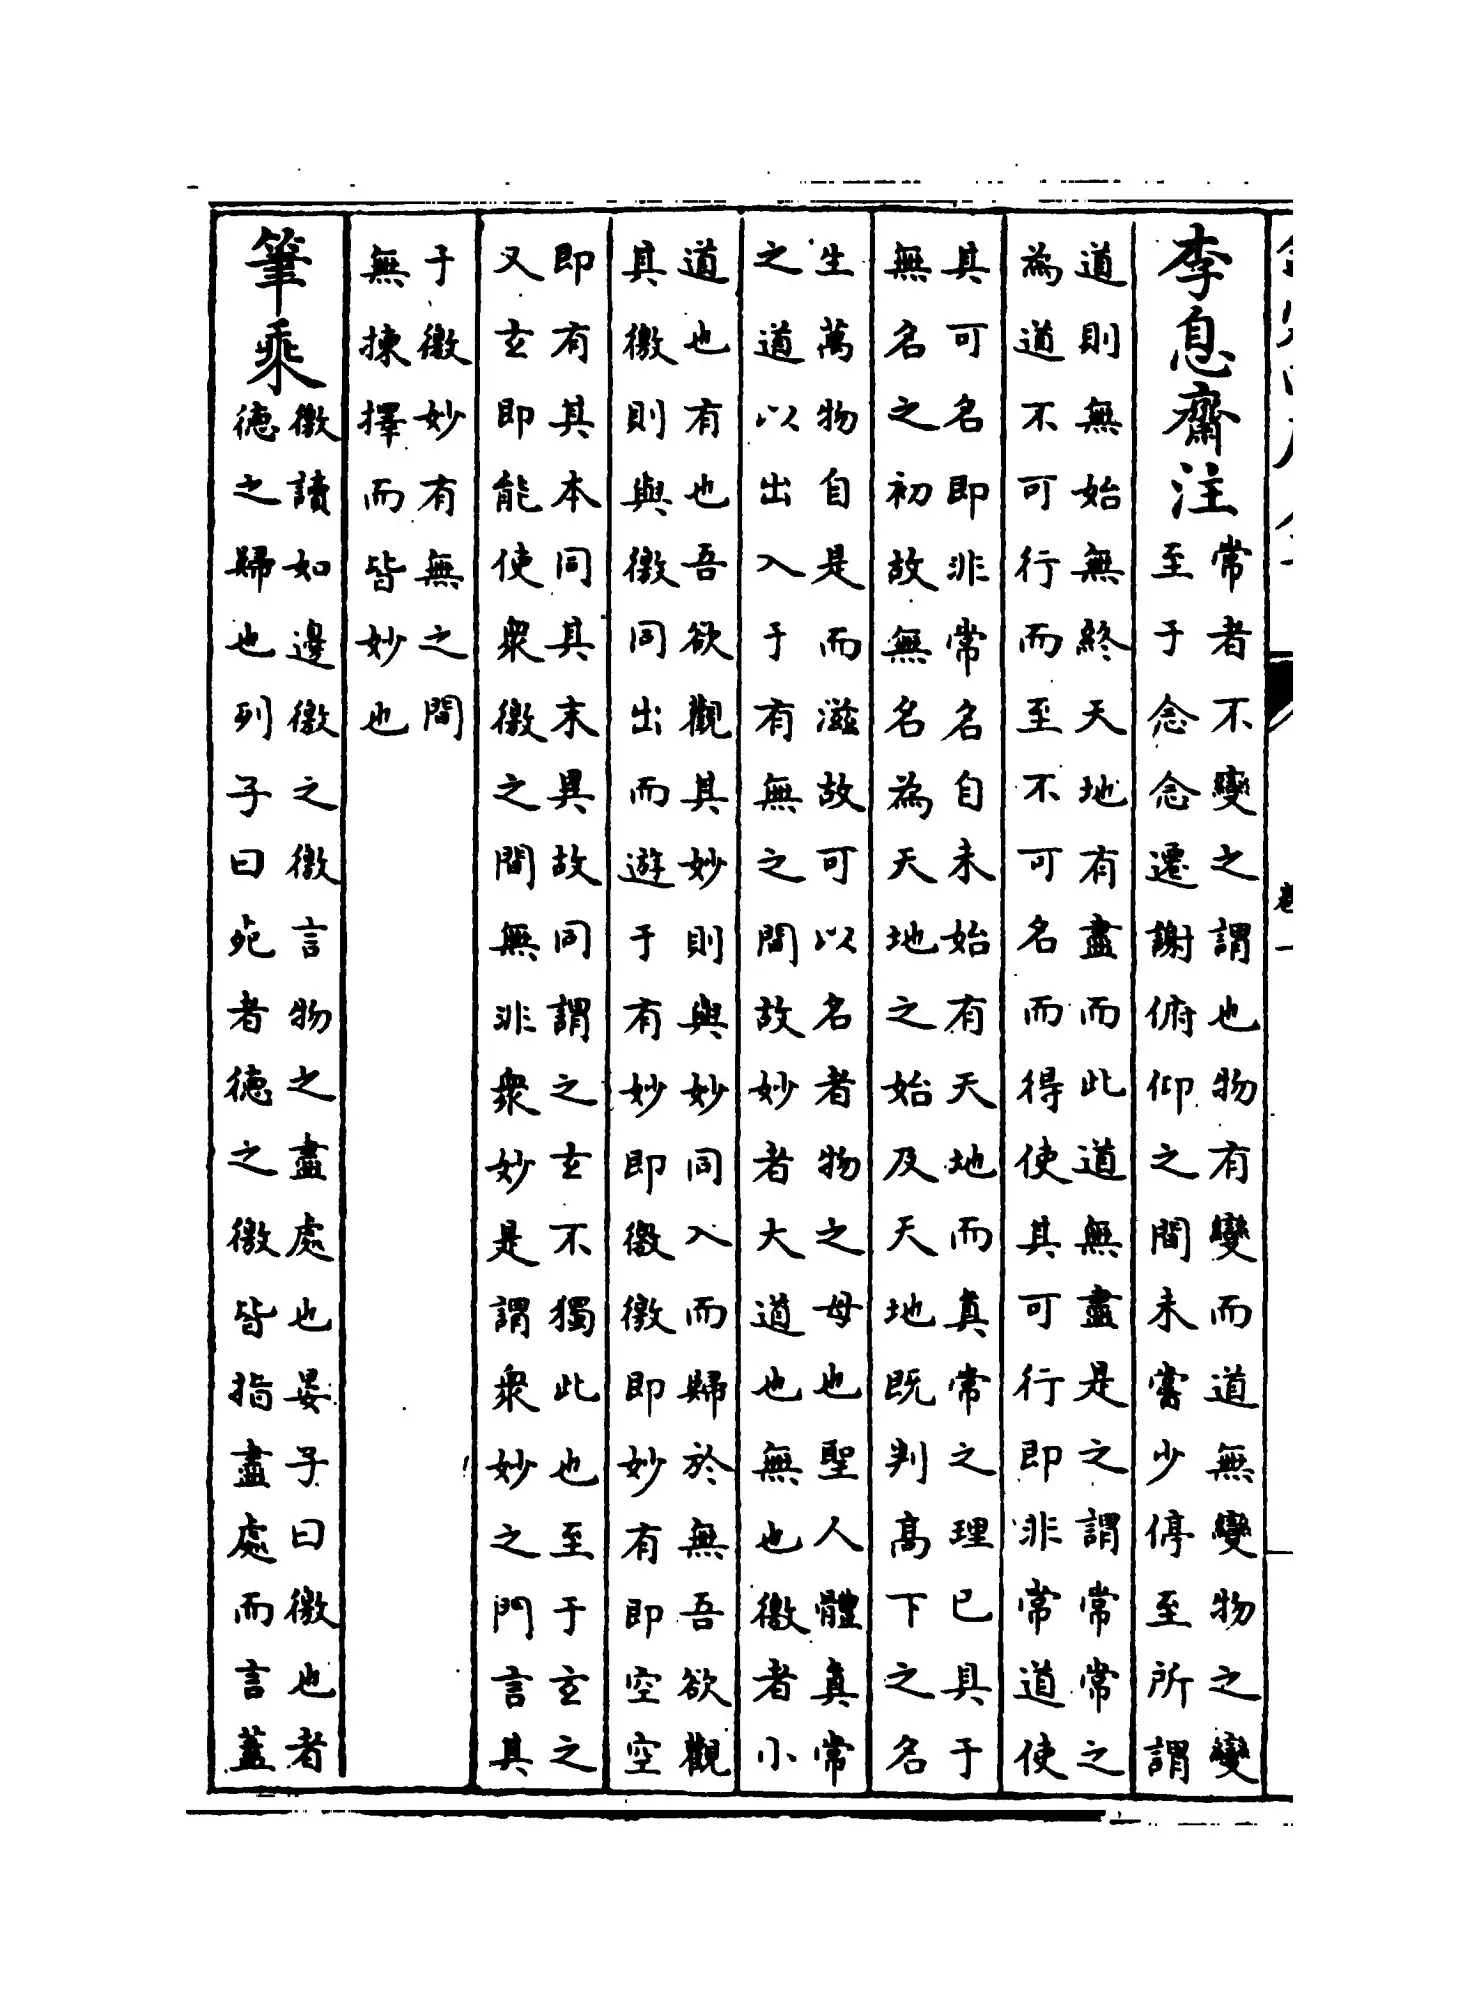 李息齋注
常者不變之謂也物有變而道無變物之變
至于念念遷謝俯仰之間未嘗少停至所謂
道則無始無終天地有盡而此道無盡是之謂常常之
為道不可行而至不可名而得使其可行即非常道使
其可名即非常名名自未始有天地而真常之理已具于
無名之初故無名名為天地之始及天地既判高下之名
生萬物自是而滋故可以名者物之母也聖人體真常
之道以出入于有無之間故妙者大道也無也徼者小
道也有也吾欲觀其妙則與妙同入而歸於無吾欲觀
其徼則與徼同出而遊于有妙即徼徼即妙有即空空
即有其本同其末異故同謂之玄不獨此也至于玄之
又玄即能使衆徼之間無非衆妙是謂衆妙之門言其
于徼妙有無之間
無揀擇而皆妙也
筆乘
徼讀如邊徼之徼言物之盡處也晏子曰徼也者
德之歸也列子曰死者德之徼皆指盡處而言蓋